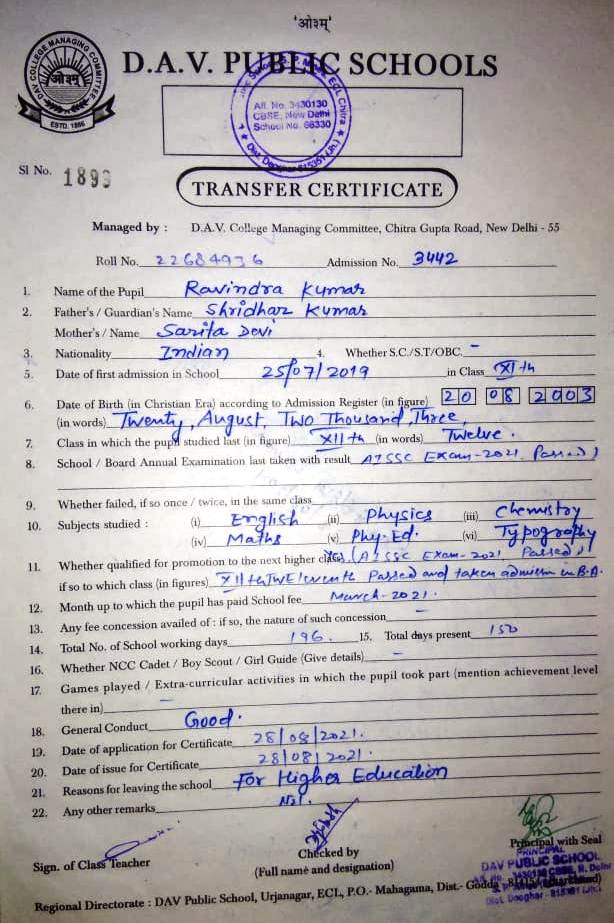 'ओ३म्'
DAV COLLEGE MANAGING COMMITTEE
ओ३म्
ESTD. 1886
D.A.V. PUBLIC SCHOOLS
ECL Chitra
Aff. No. 3430130
CBSE, New Delhi
School No. 66330
Dist. Deoghar 815351 (Jh.)
Sl No. 1899
TRANSFER CERTIFICATE
Managed by : D.A.V. College Managing Committee, Chitra Gupta Road, New Delhi - 55
Roll No. 22684936 Admission No. 3442
1. Name of the Pupil Ravindra Kumar
2. Father's / Guardian's Name Shridhar Kumar
Mother's / Name Sarita Devi
3. Nationality Indian 4. Whether S.C./S.T/OBC. -
5. Date of first admission in School 25/07/2019 in Class XIth
6. Date of Birth (in Christian Era) according to Admission Register (in figure) 20 08 2003
(in words) Twenty, August, Two Thousand, Three,
7. Class in which the pupil studied last (in figure) XIIth (in words) Twelve.
8. School / Board Annual Examination last taken with result AISSC Exam-2021 Passed,
9. Whether failed, if so once / twice, in the same class
10. Subjects studied : (i) English (ii) Physics (iii) Chemistry
(iv) Maths (v) Phy. Ed. (vi) Typography
11. Whether qualified for promotion to the next higher class Yes, (AISSC Exam-2021 Passed,)
if so to which class (in figures) XIIth Passed and taken admission in B.A.
12. Month up to which the pupil has paid School fee March-2021.
13. Any fee concession availed of : if so, the nature of such concession -
14. Total No. of School working days 196. 15. Total days present 150
16. Whether NCC Cadet / Boy Scout / Girl Guide (Give details) -
17. Games played / Extra-curricular activities in which the pupil took part (mention achievement level
there in) -
18. General Conduct Good.
19. Date of application for Certificate 28/08/2021.
20. Date of issue for Certificate 28/08/2021.
21. Reasons for leaving the school For Higher Education
22. Any other remarks Nil.
Sign. of Class Teacher
Checked by
(Full name and designation)
Principal with Seal
PRINCIPAL
DAV PUBLIC SCHOOL
Regional Directorate : DAV Public School, Urjanagar, ECL, P.O.- Mahagama, Dist.- Godda